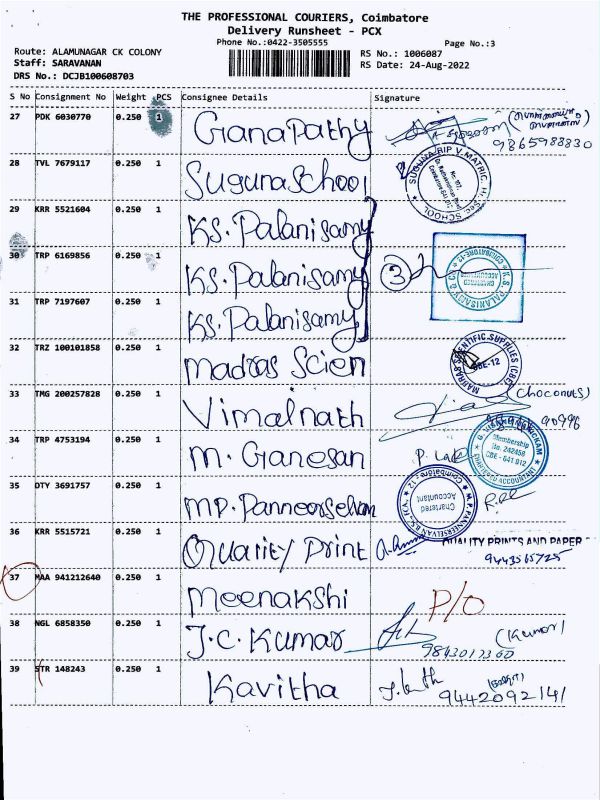 THE PROFESSIONAL COURIERS, Coimbatore
Delivery Runsheet - PCX
Phone No.:0422-3505555
Page No.:3
Route: ALAMUNAGAR CK COLONY
Staff: SARAVANAN
DRS No.: DCJB100608703
RS No.: 1006087
RS Date: 24-Aug-2022
S No Consignment No Weight PCS Consignee Details Signature
27 PDK 6030770 0.250 1 Ganapathy
9865988830
28 TVL 7679117 0.250 1 Suguna School
SUGUNA RIP V MATRIC. Hr. Sec SCHOOL
29 KRR 5521604 0.250 1 KS. Palanisamy
30 TRP 6169856 0.250 1 KS. Palanisamy 3
K.S. PALANISAMY & CO
CHARTERED ACCOUNTANTS
COIMBATORE-12
31 TRP 7197607 0.250 1 KS. Palanisamy
32 TRZ 100101858 0.250 1 Madras Scien
MADRAS SCIENTIFIC SUPPLIES (CBE)
CBE-12
33 TMG 200257828 0.250 1 Vimalnath
(Choconuts)
34 TRP 4753194 0.250 1 M. Ganesan
Membership
No. 242458
CBE - 641 012
CHARTERED ACCOUNTANT
35 DTY 3691757 0.250 1 MP. Panneerselvam
M.P. PANNEERSELVAM
Chartered
Accountant
Coimbatore - 12
36 KRR 5515721 0.250 1 Quarity Print
QUALITY PRINTS AND PAPER
9443565725
37 MAA 941212640 0.250 1 Meenakshi P/O
38 NGL 6858350 0.250 1 J.C. Kumar (Kumar)
9843017360
39 STR 148243 0.250 1 Kavitha
9442092141